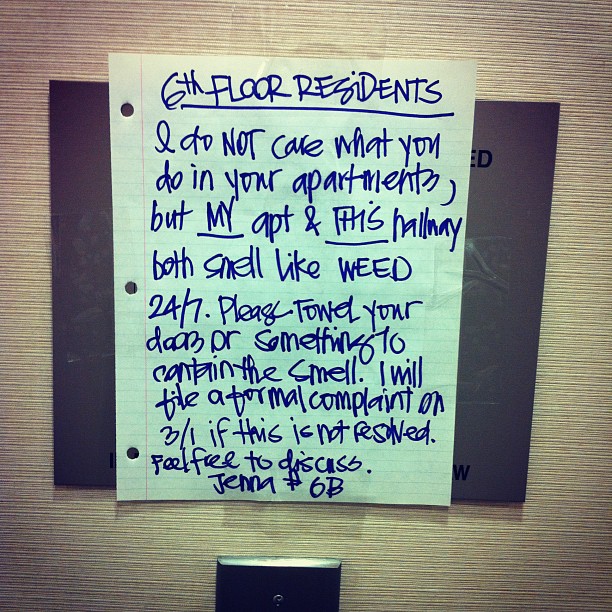 6th FLOOR RESIDENTS
I do NOT care what you
do in your apartments,
but MY apt & THIS hallway
both smell like WEED
24/7. Please Towel your
doors or something to
contain the smell. I will
file a formal complaint on
3/1 if this is not resolved.
Feel free to discuss.
Jenna # 6B
ED
W